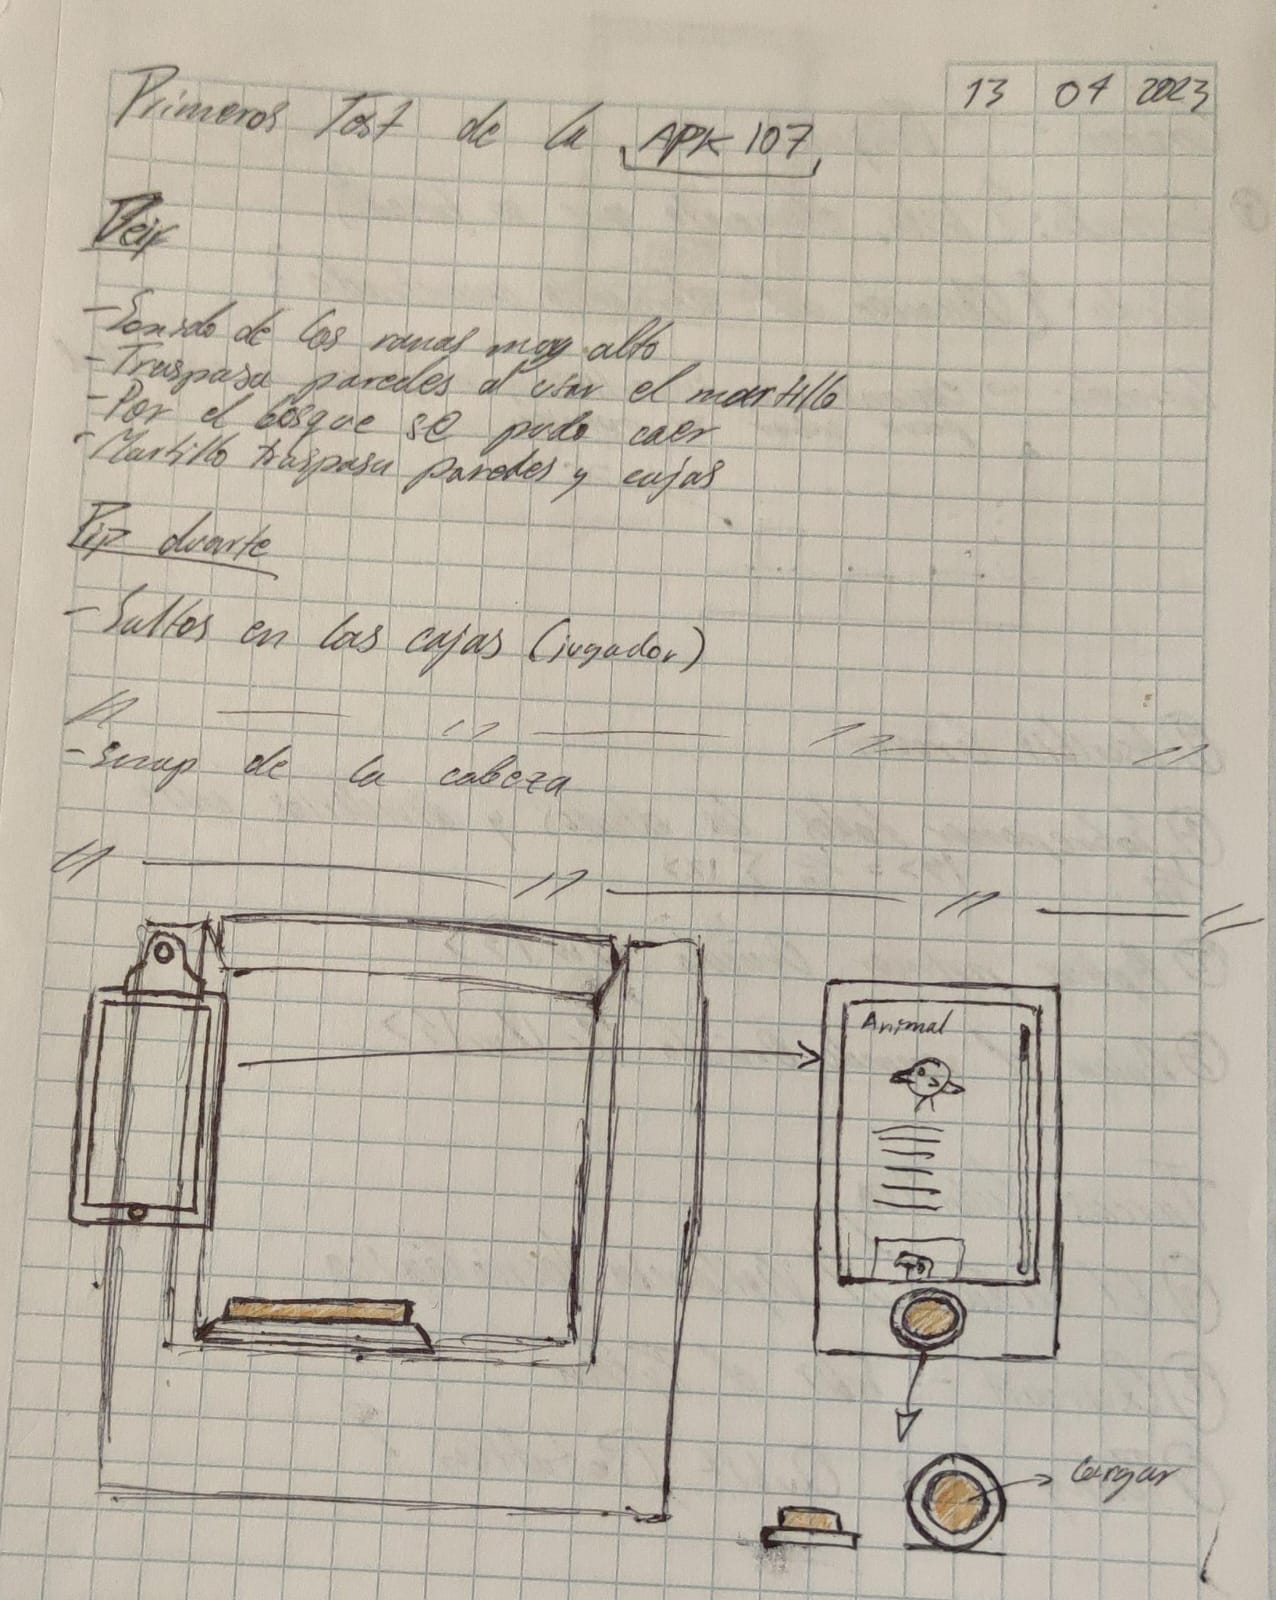 13 04 2023
Primeros Test de la APK 107
- Sonido de las ranas muy alto
- Traspasa paredes al usar el martillo
- Por el bosque se pudo caer
- Martillo traspasa paredes y cajas
duarte
- Saltos en las cajas (jugador)
- snap de la cabeza
Animal
Cargar